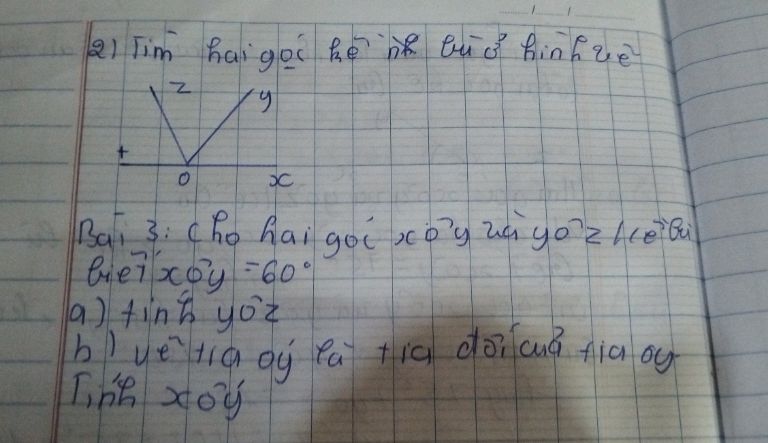 2) Tìm hai góc kề bù ở hình vẽ
z
y
t
O
x
Bài 3: Cho hai góc xÔy và yÔz kề bù
biết xÔy = 60°
a) tính yÔz
b) vẽ tia oý là tia đối của tia oy
Tính xÔý